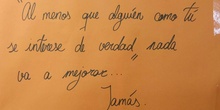 "Al menos que alguien como tú
se interese de verdad" nada
va a mejorar...
Jamás.